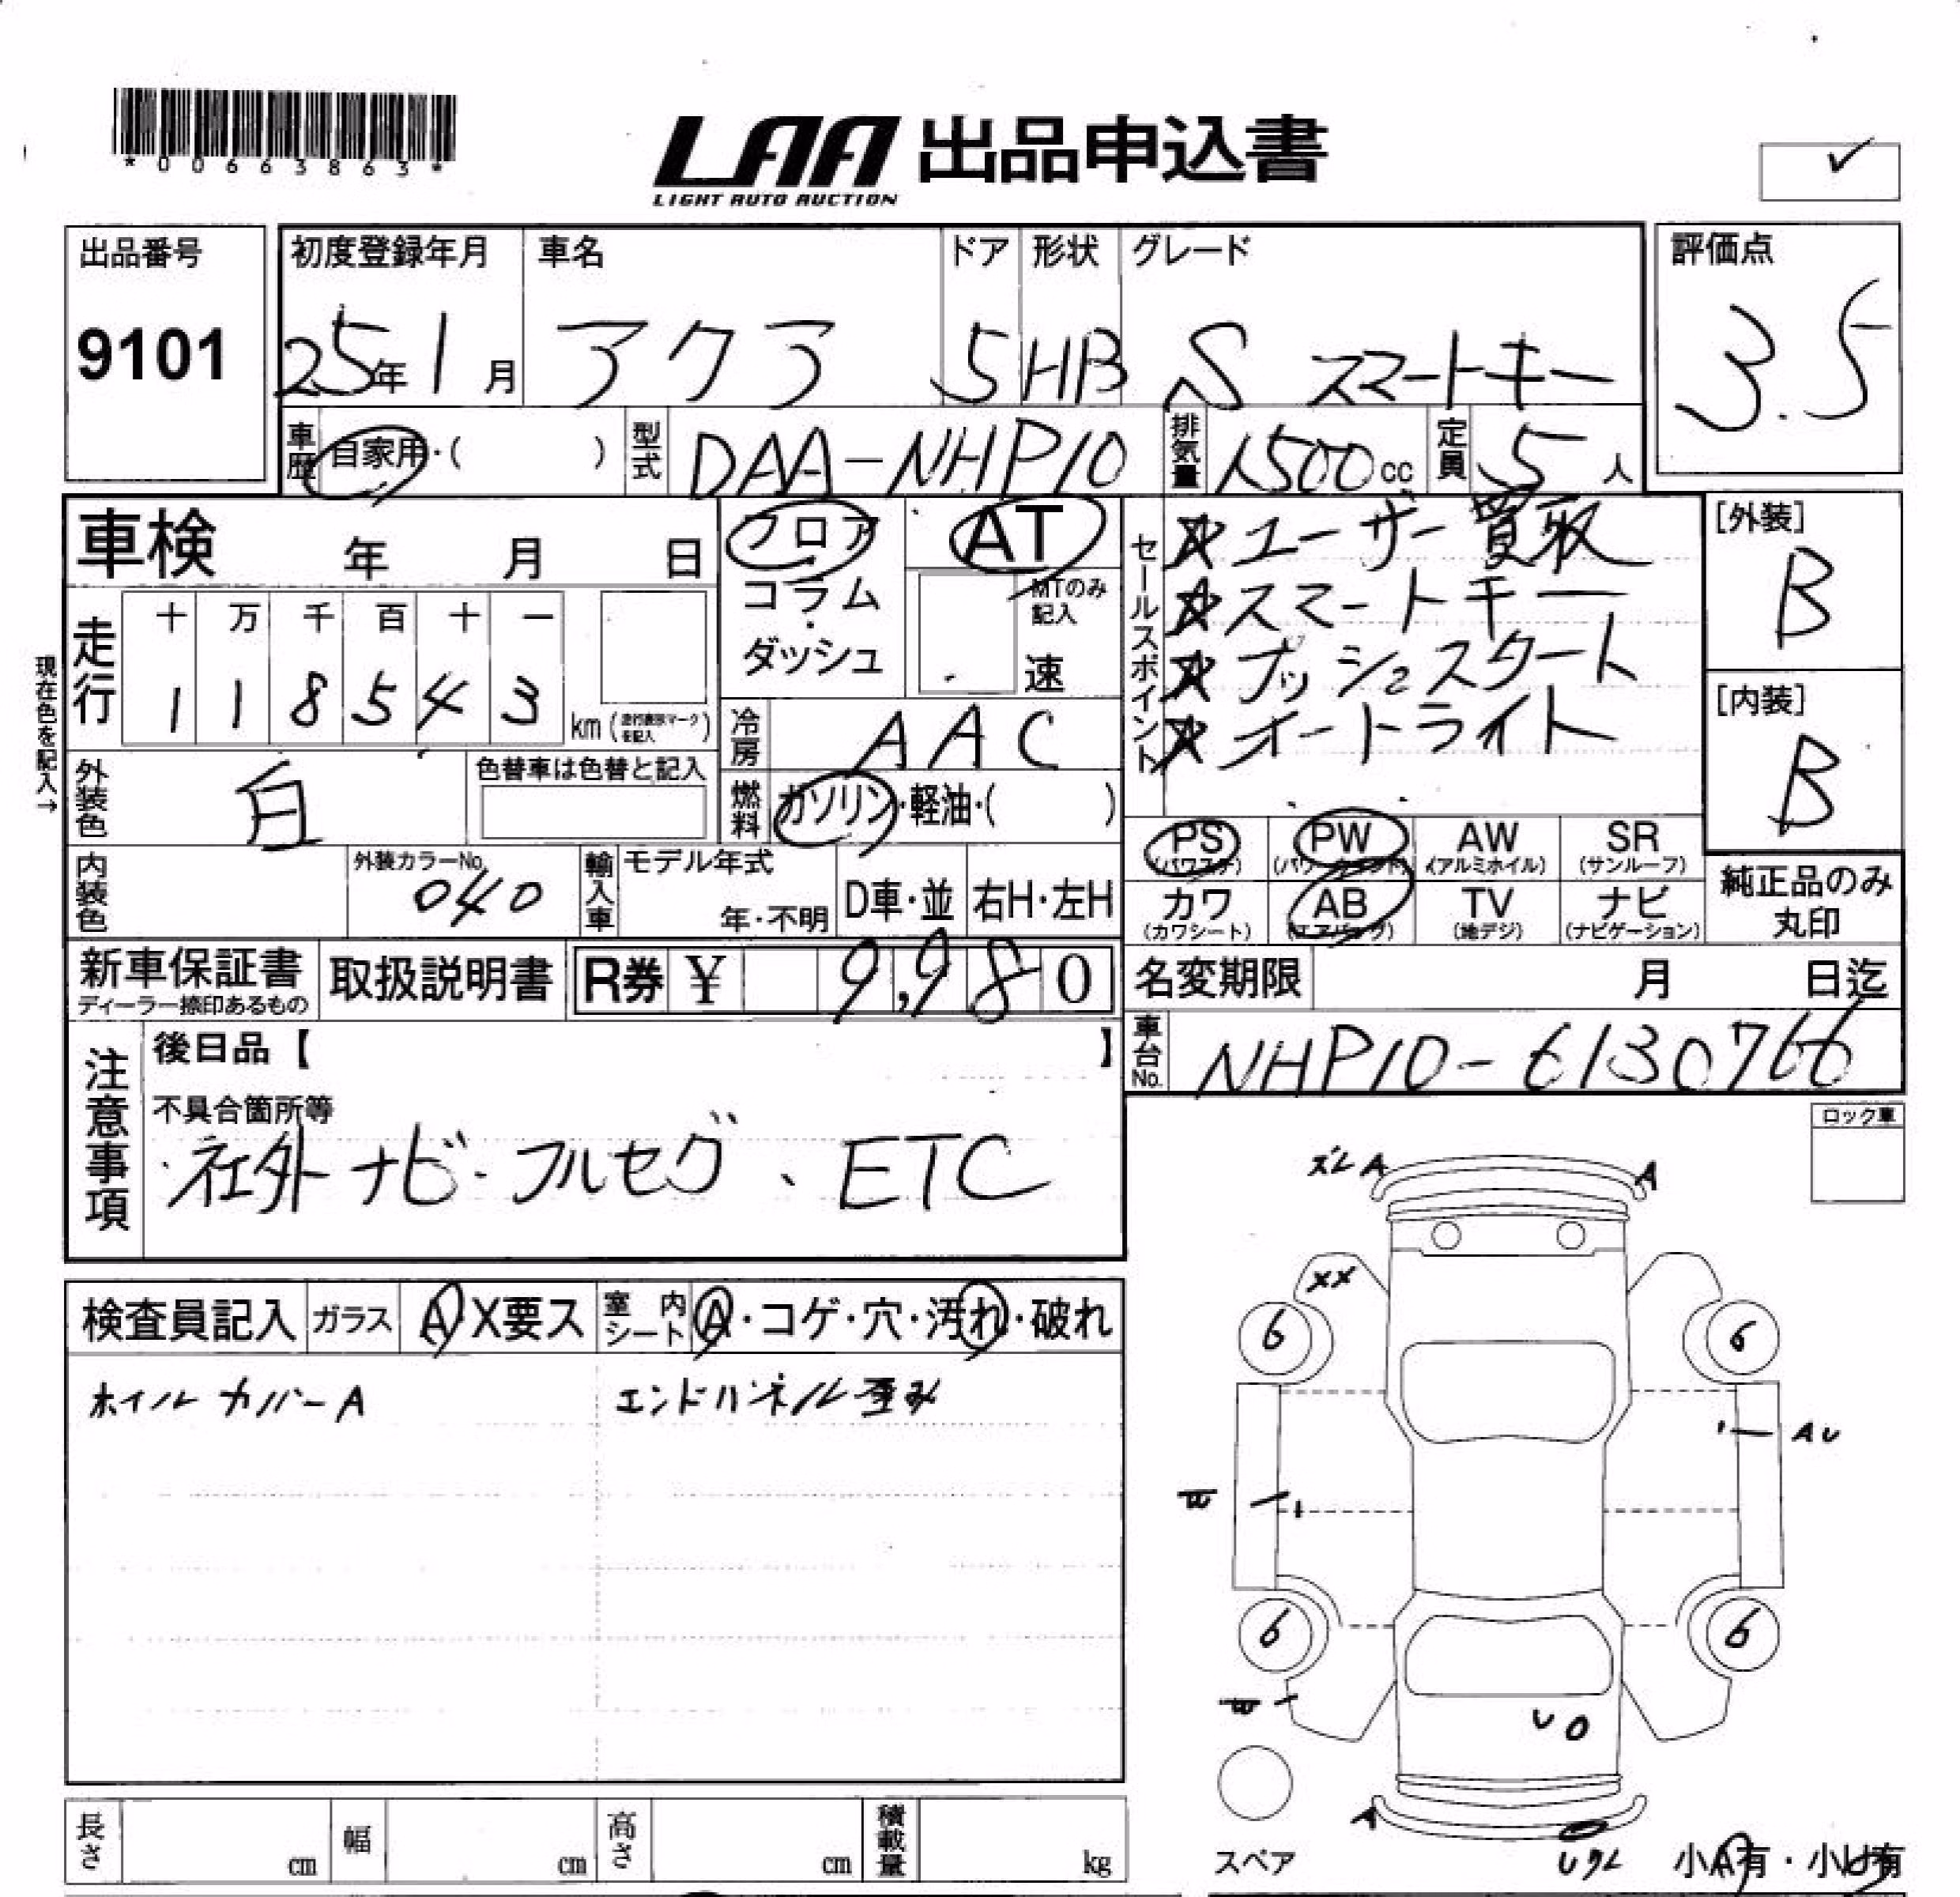 *00663863*
LAA 出品申込書
LIGHT AUTO AUCTION
✓
出品番号
9101
初度登録年月
25年1月
車名
アクア
ドア
5
形状
HB
グレード
S スマートキー
評価点
3.5
車歴
自家用・( )
型式
DAA-NHP10
排気量
1500cc
定員
5人
車検 年 月 日
フロア
コラム
ダッシュ
AT
MTのみ記入
速
セールスポイント
☆ユーザー買取
☆スマートキー
☆プッシュスタート
☆オートライト
[外装]
B
[内装]
B
現在色を記入→
走行
十 万 千 百 十 一
1 1 8 5 4 3
km( )
冷房
AAC
外装色
白
色替車は色替と記入
燃料
ガソリン・軽油・( )
PS (パワステ)
PW (パワーウインド)
AW (アルミホイル)
SR (サンルーフ)
カワ (カワシート)
AB (エアバッグ)
TV (地デジ)
ナビ (ナビゲーション)
純正品のみ
丸印
内装色
外装カラーNo.
040
輸入車
モデル年式
年・不明
D車・並
右H・左H
新車保証書
ディーラー捺印あるもの
取扱説明書
R券 ¥ 9,980
名変期限 月 日迄
車台No.
NHP10-6130766
注意事項
後日品【 】
不具合箇所等
社外ナビ・フルセグ、ETC
ロック車
検査員記入
ガラス A X要ス
室内シート A・コゲ・穴・汚れ・破れ
ホイルカバーA
エンドパネル歪み
ズレ A
A
XX
6
6
AU
6
6
U
A
スペア
小A有・小U有
長さ cm
幅 cm
高さ cm
積載量 kg